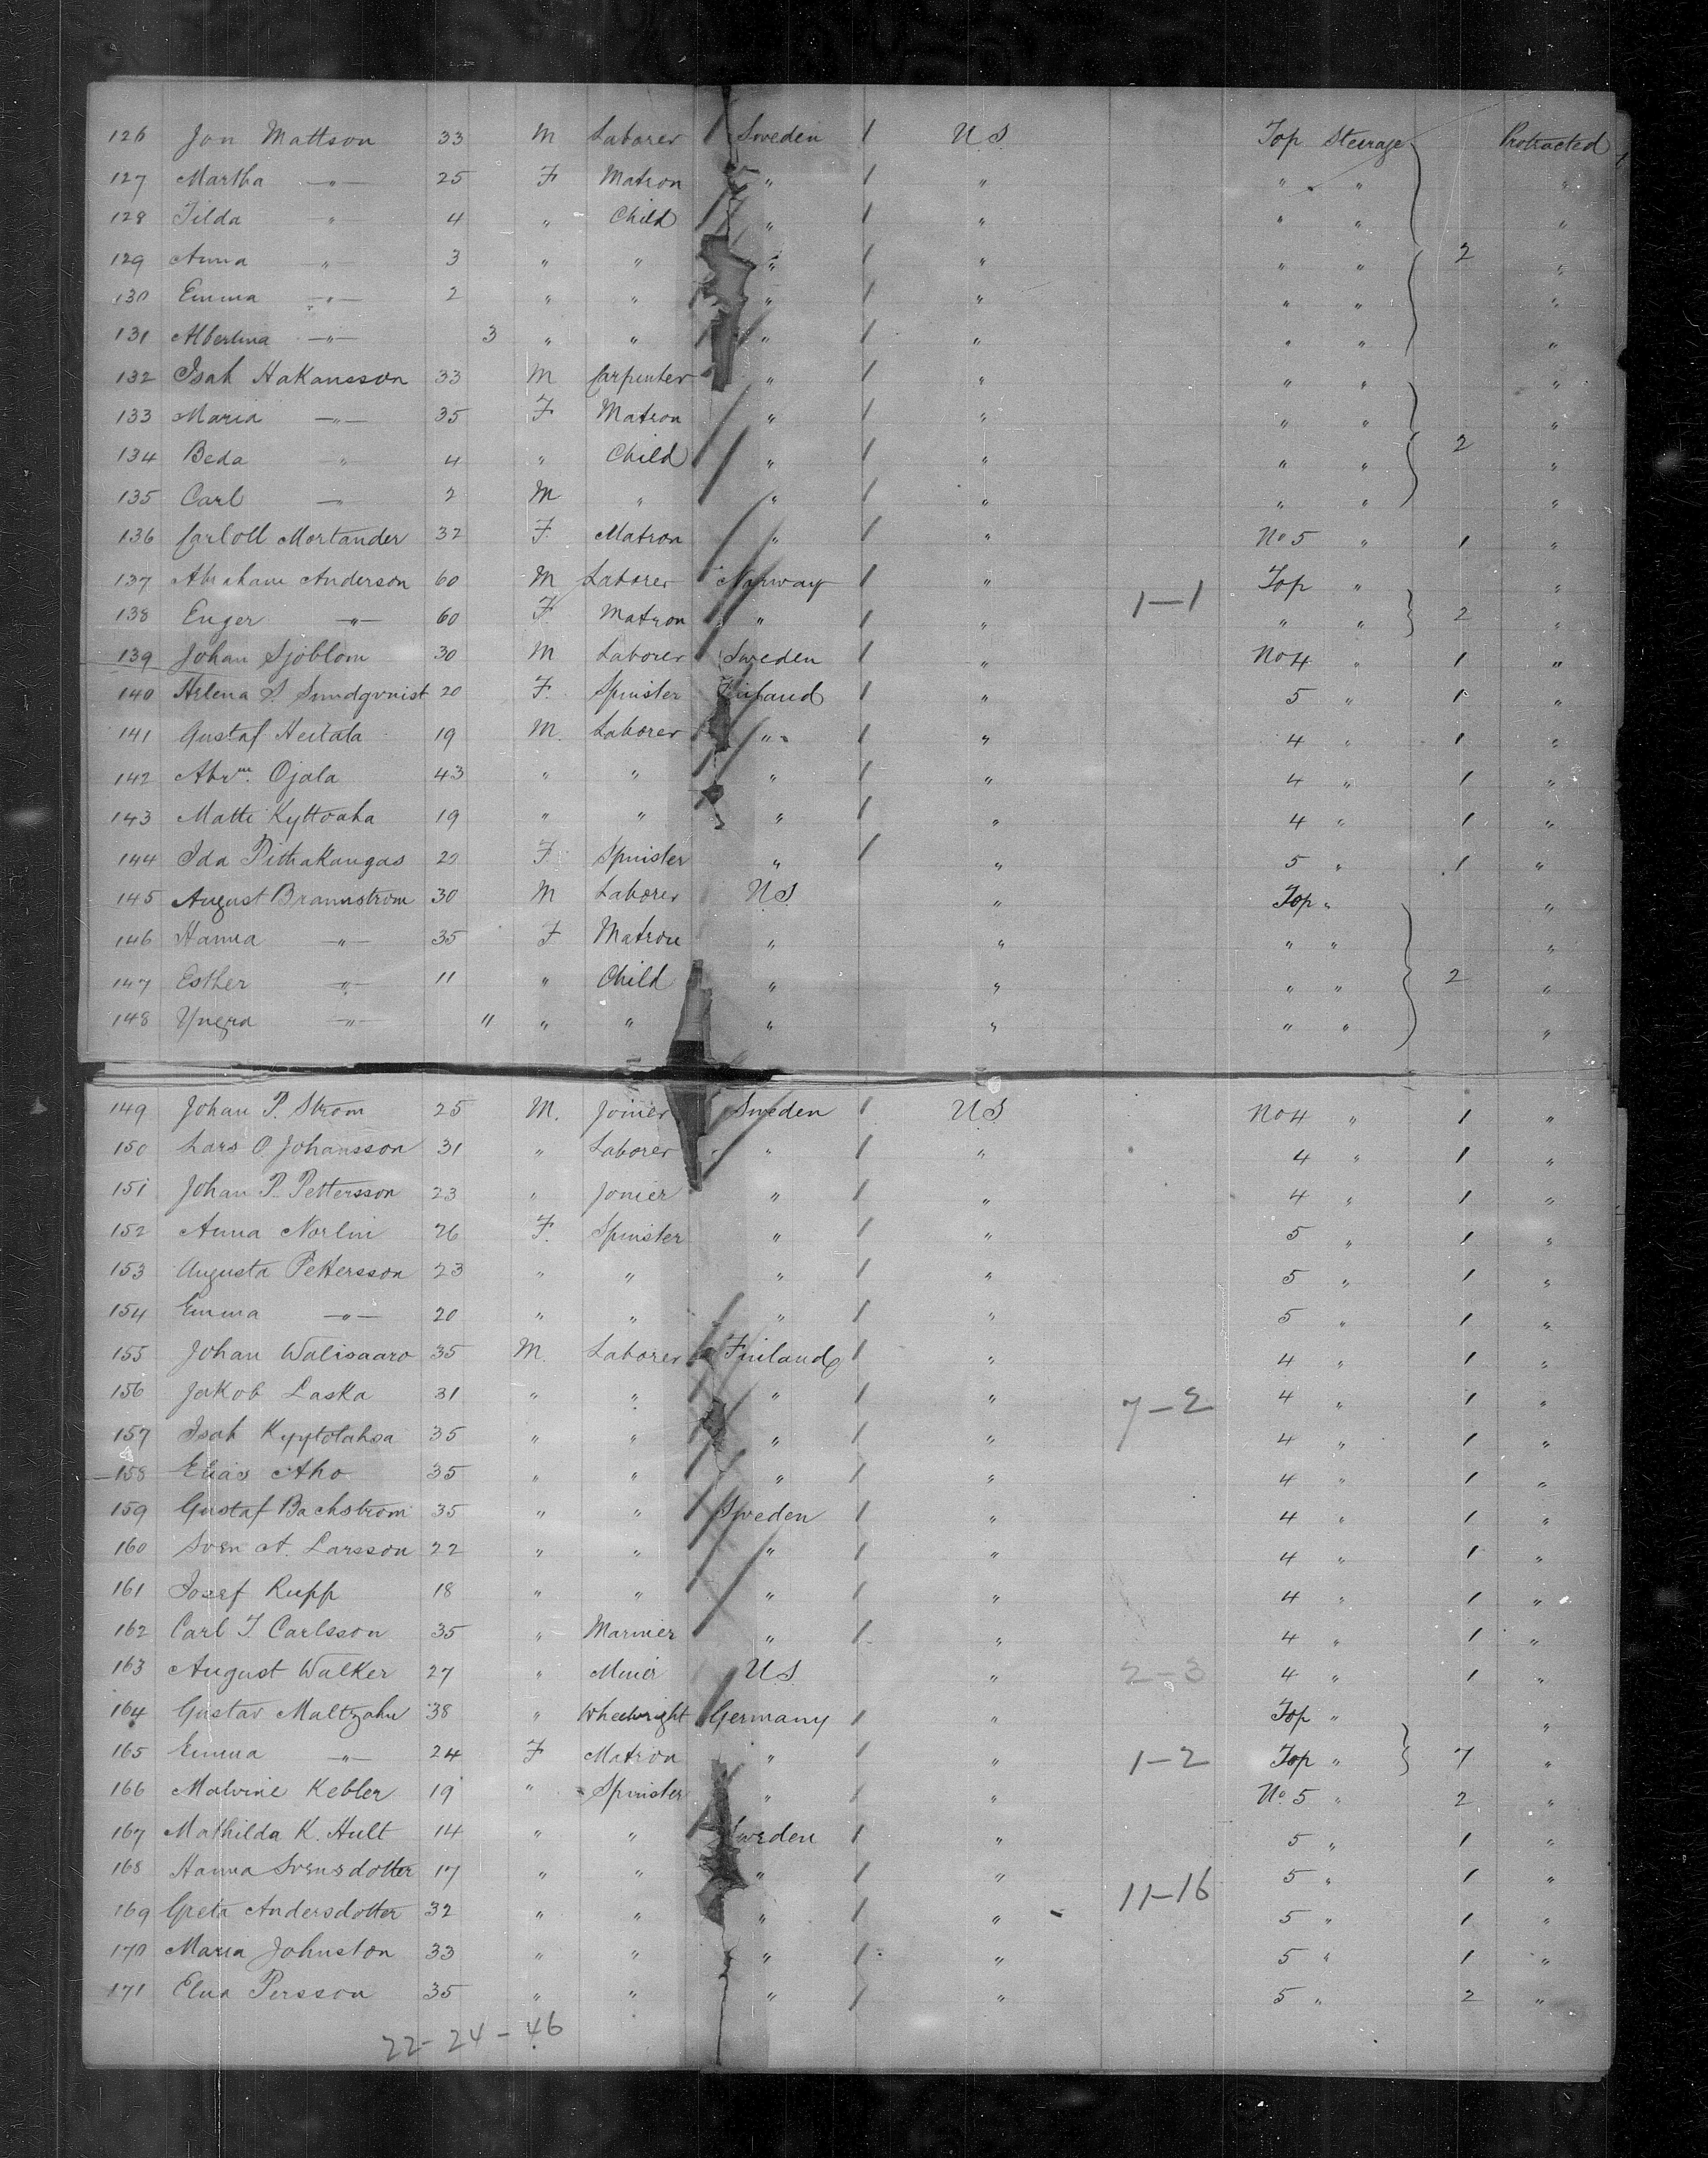 126 Jon Mattson 33 M Laborer Sweden / U S Top Steerage Protracted
127 Martha —"— 25 F Matron " / " " " "
128 Tilda " 4 " Child " / " " " "
129 Anna —"— 3 " " " / " " " 2 "
130 Emma —"— 2 " " " / " " " "
131 Albertina —"— 3 " " " / " " " "
132 Isak Hakansson 33 M Carpenter " / " " " "
133 Maria —"— 35 F Matron " / " " " "
134 Beda " 4 " Child " / " " " 2 "
135 Carl —"— 2 M " " / " " " "
136 Carloll Mortander 32 F. Matron " / " No 5 " 1 "
137 Abraham Anderson 60 M Laborer Norway / " 1–1 Top " "
138 Enger —"— 60 F. Matron " / " " " 2 "
139 Johan Sjoblom 30 M Laborer Sweden / " No 4 " 1 "
140 Helena S. Sundqvist 20 F. Spinster Finland / " 5 " 1 "
141 Gustaf Heitala 19 M. Laborer " / " 4 " 1 "
142 Abrm. Ojala 43 " " " / " 4 " 1 "
143 Matti Kyttoaha 19 " " " / " 4 " 1 "
144 Ida Pitkakangas 20 F. Spinster " / " 5 " 1 "
145 August Brannstrom 30 M Laborer U S " Top " "
146 Hanna —"— 35 F Matron " " " " "
147 Esther —"— 11 " Child " " " " 2 "
148 Yngra —"— 11 " " " " " " "
149 Johan P. Strom 25 M. Joiner Sweden / U S No 4 " 1 "
150 Lars O. Johansson 31 " Laborer " / " 4 " 1 "
151 Johan P. Pettersson 23 " Joiner " / " 4 " 1 "
152 Anna Norlin 26 F. Spinster " / " 5 " 1 "
153 Augusta Pettersson 23 " " " / " 5 " 1 "
154 Emma —"— 20 " " " / " 5 " 1 "
155 Johan Walisaaro 35 M. Laborer Finland / " 4 " 1 "
156 Jakob Laska 31 " " " / " 7–2 4 " 1 "
157 Isak Kyytolahoa 35 " " " / " 4 " 1 "
158 Elias Aho 35 " " " / " 4 " 1 "
159 Gustaf Bachstrom 35 " " Sweden / " 4 " 1 "
160 Sven A. Larsson 22 " " " / " 4 " 1 "
161 Josef Rupp 18 " " " / " 4 " 1 "
162 Carl J Carlsson 35 " Mariner " / " 4 " 1 "
163 August Walker 27 " Miner U S " 2–3 4 " 1 "
164 Gustav Maltzahn 38 " Wheelwright Germany / " Top " "
165 Emma —"— 24 F Matron " / " 1–2 Top " 7 "
166 Malvine Kebler 19 " Spinster " / " No 5 " 2 "
167 Mathilda K. Hult 14 " " Sweden / " 5 " 1 "
168 Hanna Svensdotter 17 " " " / " 11–16 5 " 1 "
169 Greta Andersdotter 32 " " " / " 5 " 1 "
170 Maria Johnston 33 " " " / " 5 " 1 "
171 Elna Persson 35 " " " / " 5 " 2 "
22–24–46